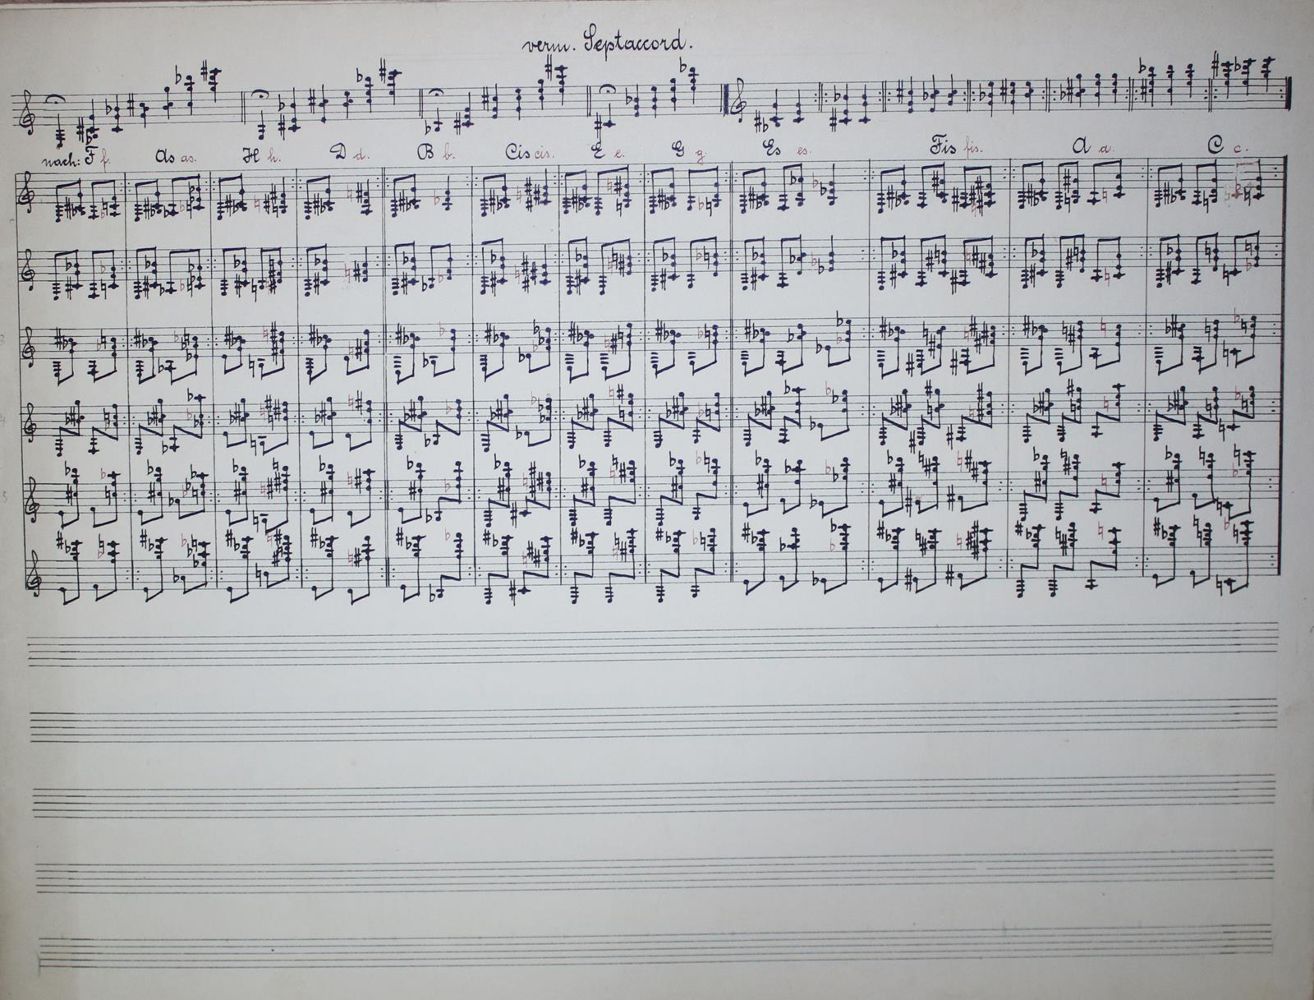 verm. Septaccord.
nach: F f. As as. H h. D d. B b. Cis cis. E e. G g. Es es. Fis fis. A a. C c.